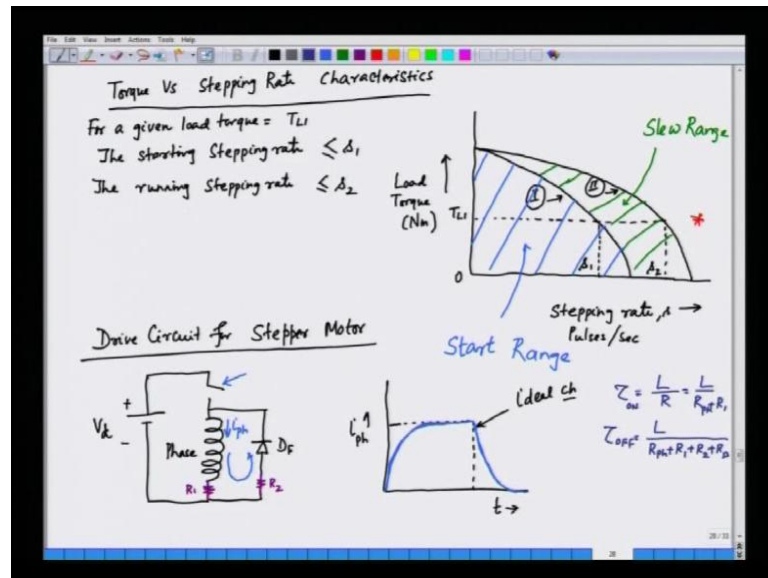 File Edit View Insert Actions Tools Help
Torque Vs Stepping Rate Characteristics
For a given load torque = TL1
The starting Stepping rate ≤ s1
The running Stepping rate ≤ s2
Slew Range
Load
Torque
(Nm)
TL1
I
II
*
0
s1
s2
Stepping rate, s →
Pulses/sec
Start Range
Drive Circuit for Stepper Motor
Vd
+
-
Phase
iph
DF
R1
R2
iph
ideal ch
t →
τON = L/R = L/Rph+R1
τOFF = L/Rph+R1+R2+RD
28/31
28